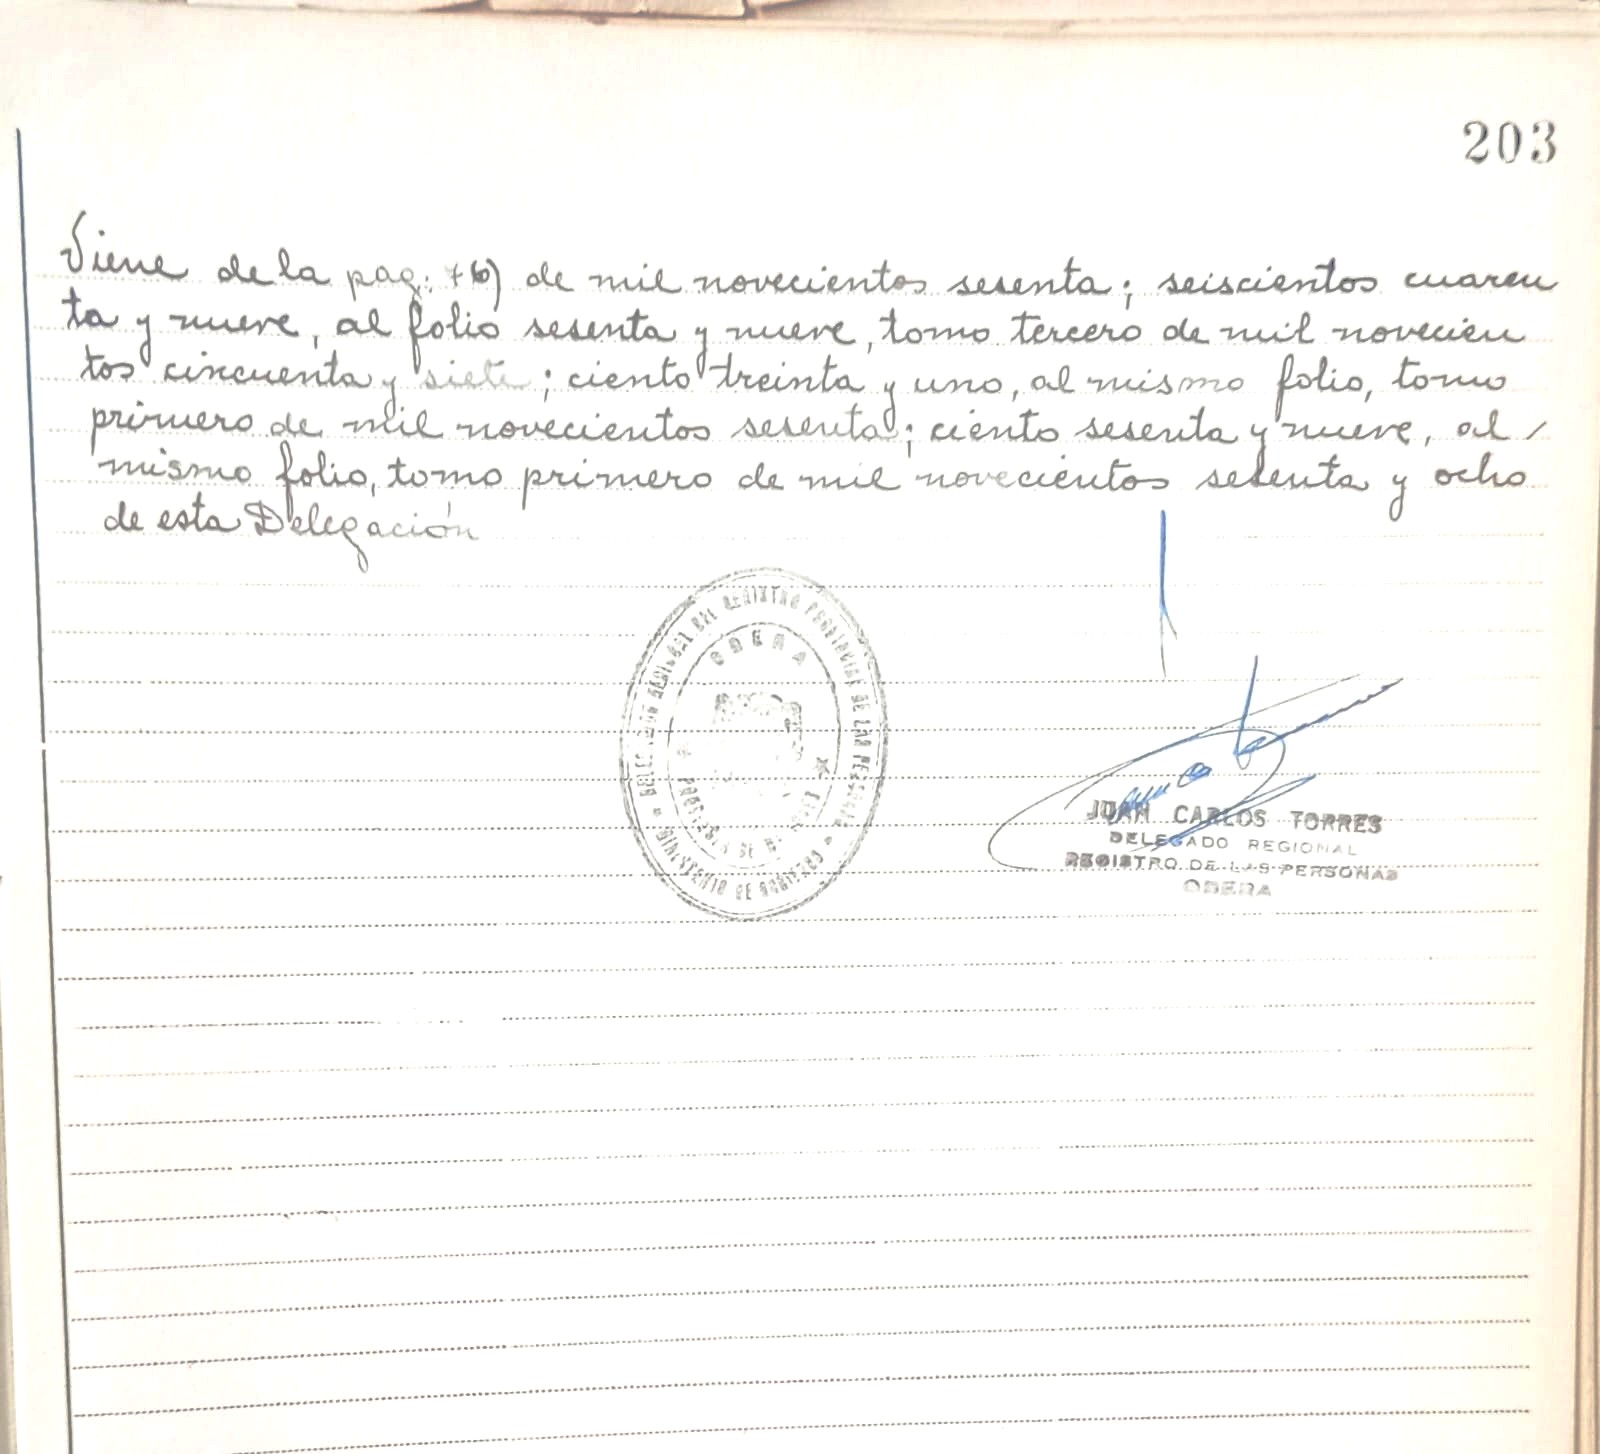 203
Viene de la pag: 76) de mil novecientos sesenta; seiscientos cuaren
ta y nueve, al folio sesenta y nueve, tomo tercero de mil novecien
tos cincuenta y siete; ciento treinta y uno, al mismo folio, tomo
primero de mil novecientos sesenta; ciento sesenta y nueve, al /
mismo folio, tomo primero de mil novecientos sesenta y ocho
de esta Delegación
REGIONAL DEL REGISTRO PROVINCIAL DE LAS PERSONAS
OBERA
MINISTERIO DE GOBIERNO
JUAN CARLOS TORRES
DELEGADO REGIONAL
REGISTRO DE LAS PERSONAS
OBERA